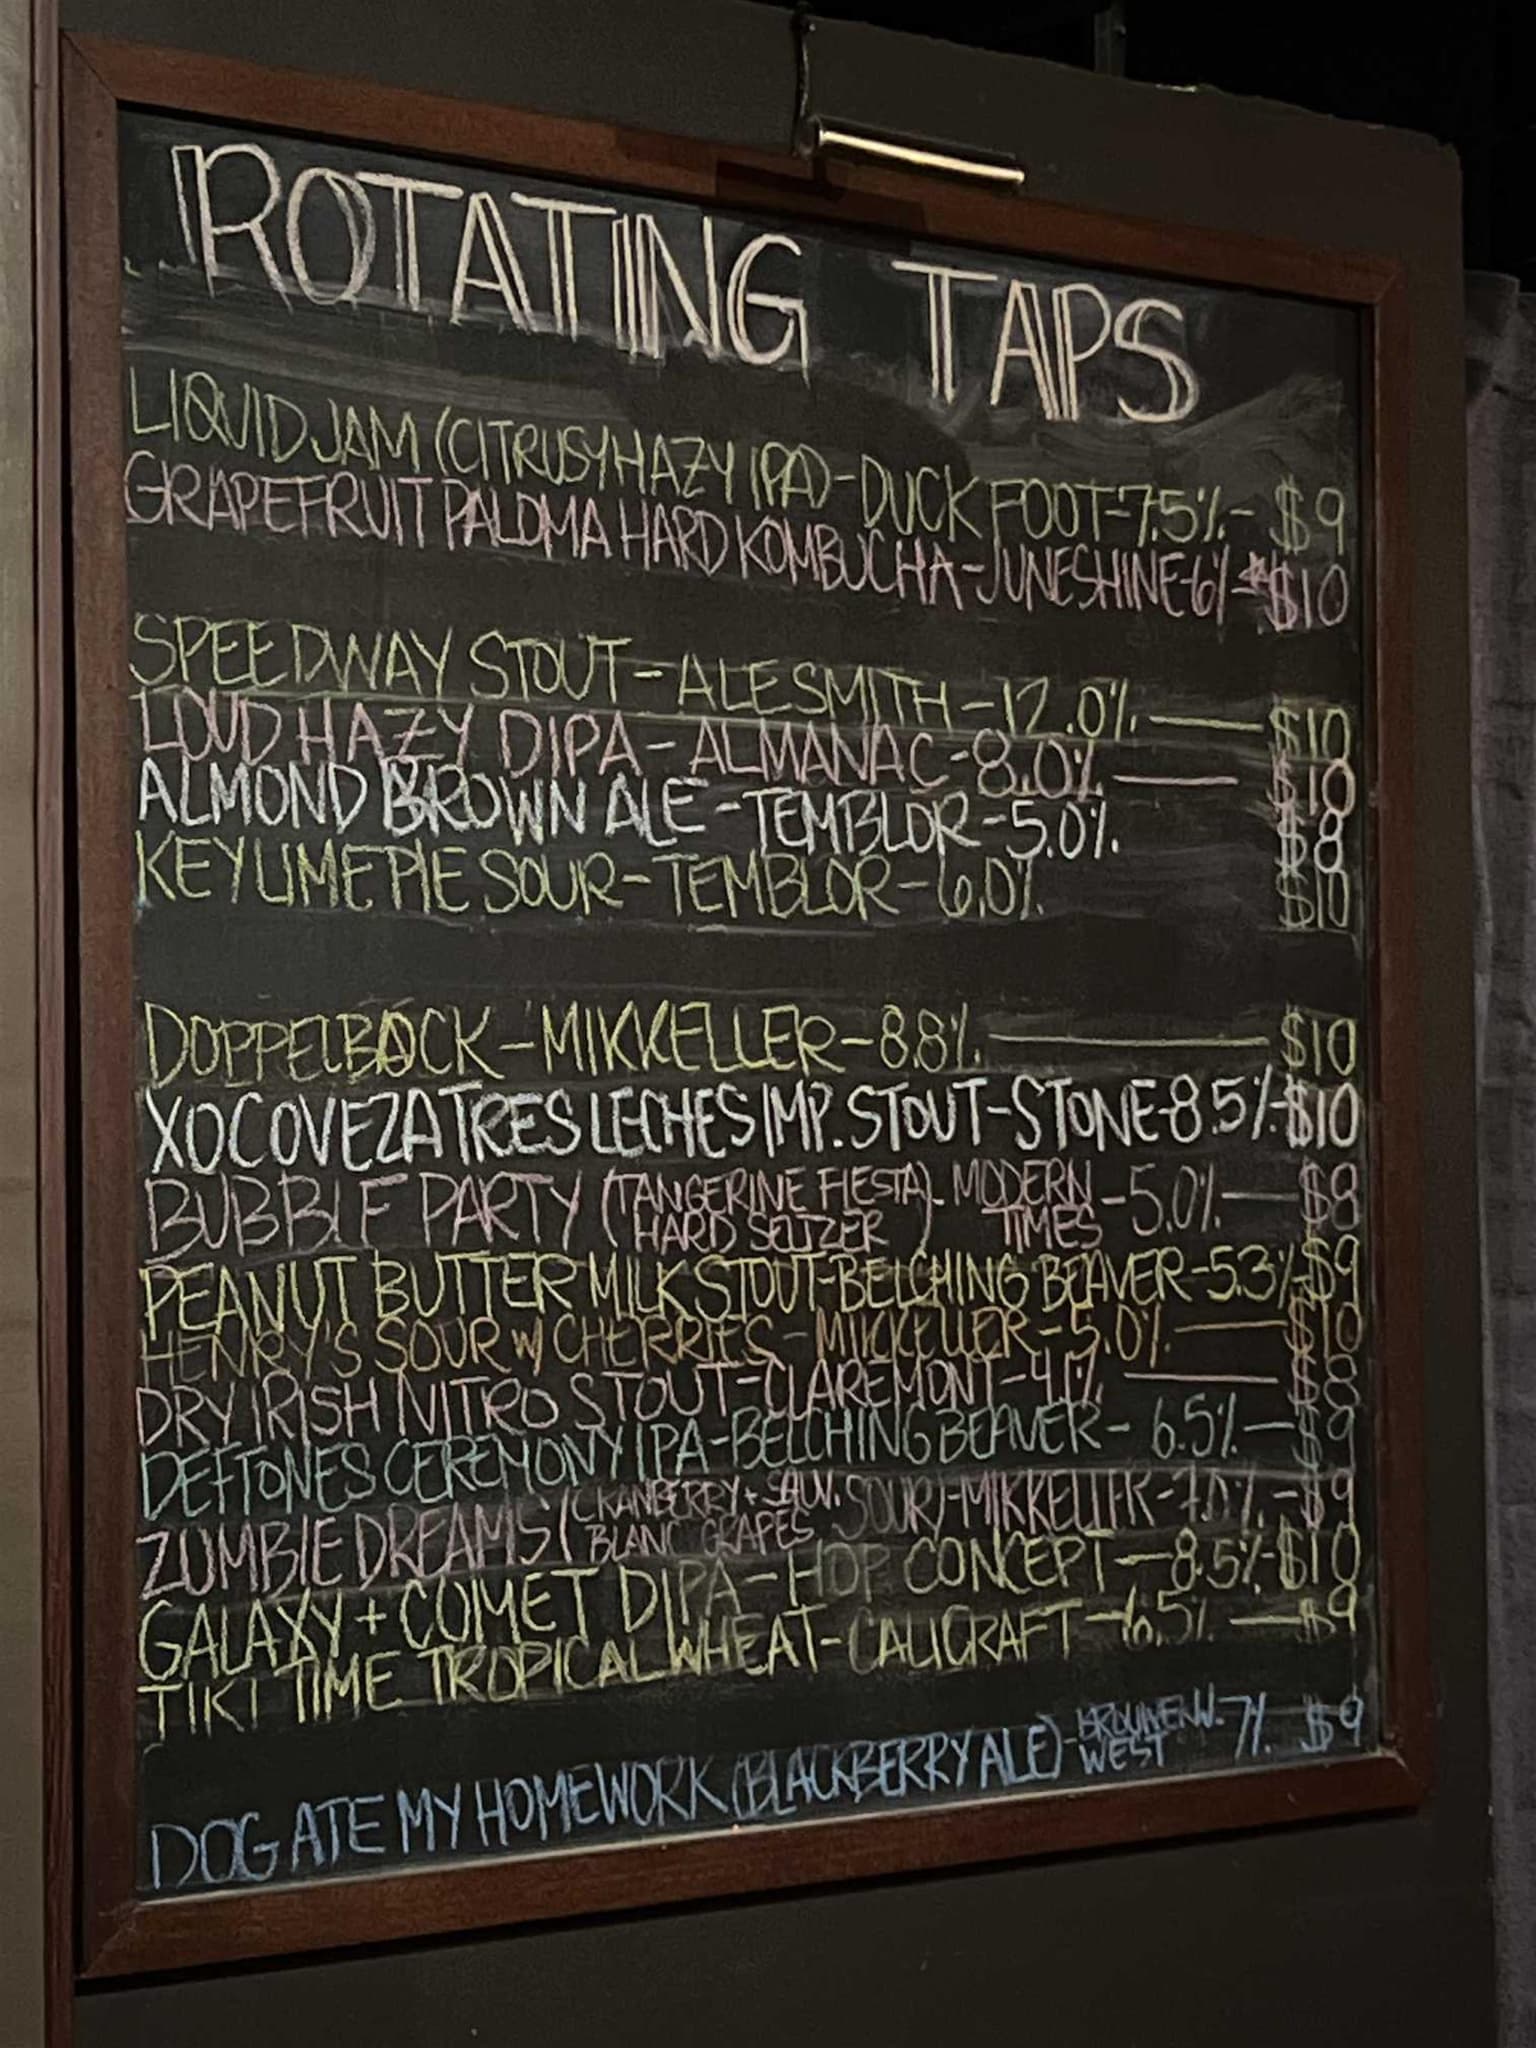 ROTATING TAPS
LIQUID JAM (CITRUSY HAZY IPA) - DUCK FOOT - 7.5% - $9
GRAPEFRUIT PALOMA HARD KOMBUCHA - JUNESHINE - 6% - $10
SPEEDWAY STOUT - ALESMITH - 12.0% — $10
LOUD HAZY DIPA - ALMANAC - 8.0% — $10
ALMOND BROWN ALE - TEMBLOR - 5.0% $8
KEY LIME PIE SOUR - TEMBLOR - 6.0% $10
DOPPELBOCK - MIKKELLER - 8.8% — $10
XOCOVEZA TRES LECHES IMP. STOUT - STONE - 8.5% - $10
BUBBLE PARTY (TANGERINE FIESTA HARD SELTZER) - MODERN TIMES - 5.0% — $8
PEANUT BUTTER MILK STOUT - BELCHING BEAVER - 5.3% - $9
HENRY'S SOUR W/ CHERRIES - MIKKELLER - 5.0% — $10
DRY IRISH NITRO STOUT - CLAREMONT - 4.1% — $8
DEFTONES CEREMONY IPA - BELCHING BEAVER - 6.5% — $9
ZOMBIE DREAMS (CRANBERRY + SAUV. BLANC GRAPES SOUR) - MIKKELLER - 7.0% - $9
GALAXY + COMET DIPA - HOP CONCEPT - 8.5% - $10
TIKI TIME TROPICAL WHEAT - CALICRAFT - 6.5% — $9
DOG ATE MY HOMEWORK (BLACKBERRY ALE) - WEST 7% $9